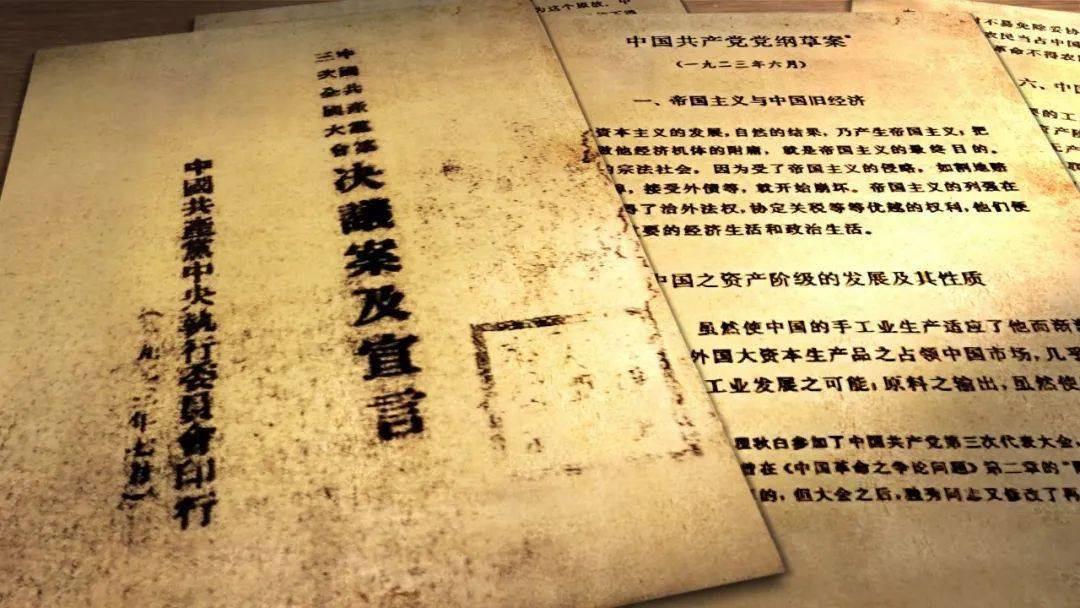 中國共產黨第
三次全國大會
决議案及宣言
中國共產黨中央執行委員會印行
为这个原故，中
中国共产党党纲草案*
（一九二三年六月）
一、帝国主义与中国旧经济
资本主义的发展，自然的结果，乃产生帝国主义；把
做他经济机体的附庸，就是帝国主义的最终目的。
宗法社会。因为受了帝国主义的侵略，如割地赔
，接受外债等，就开始崩坏。帝国主义的列强在
得了治外法权，协定关税等等优越的权利，他们便
要的经济生活和政治生活。
中国之资产阶级的发展及其性质
虽然使中国的手工业生产适应了他而渐
外国大资本生产品之占领中国市场，几乎
工业发展之可能；原料之输出，虽然使
瞿秋白参加了中国共产党第三次代表大会，
曾在《中国革命之争论问题》第二章的“
的，但大会之后，独秀同志又修改了再
不易免除妥协
农民当占中国
革命不得农
六、中
的工